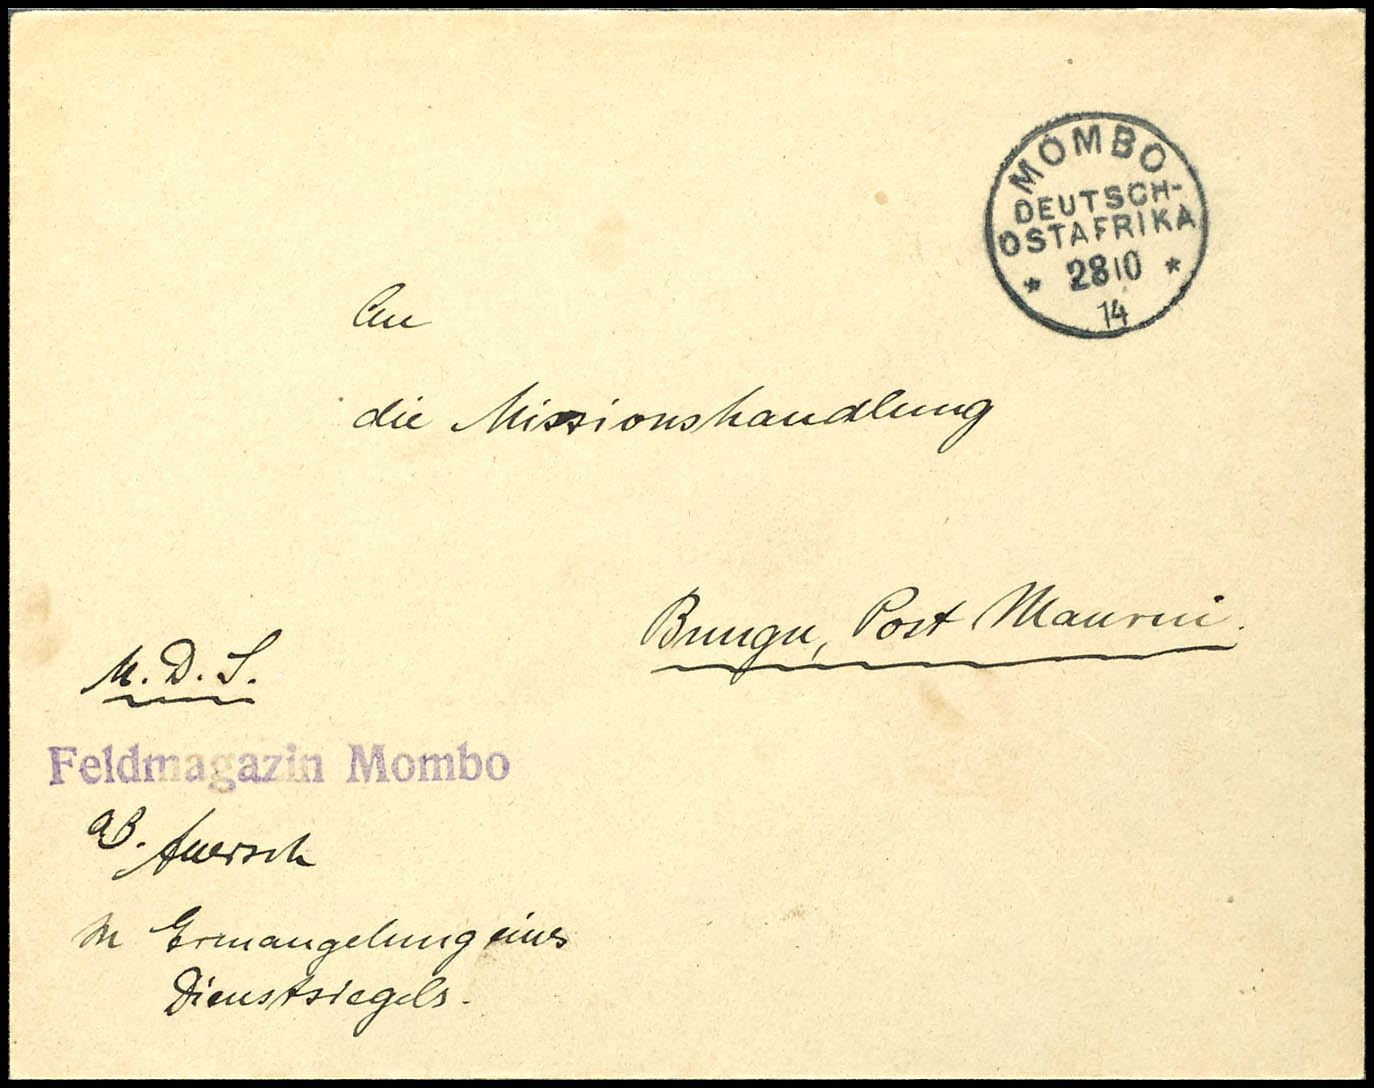 MOMBO
DEUTSCH-
OSTAFRIKA
* 2810 *
14
An
die Missionshandlung
Bungu, Post Maurui.
M. D. S.
Feldmagazin Mombo
aB.
In Ermangelung eines
Dienstsiegels.